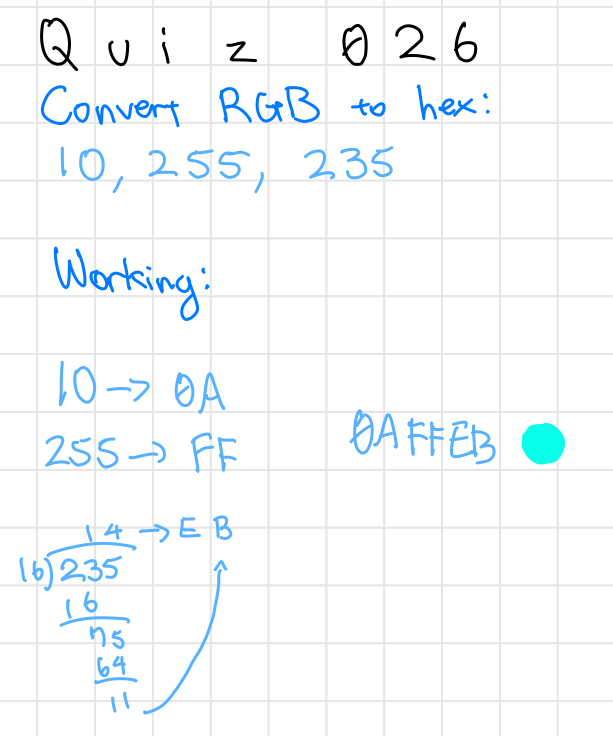 Quiz 026
Convert RGB to hex:
10, 255, 235
Working:
10 → 0A
255 → FF
0AFFEB
14 → E B
16)235
16
75
64
11